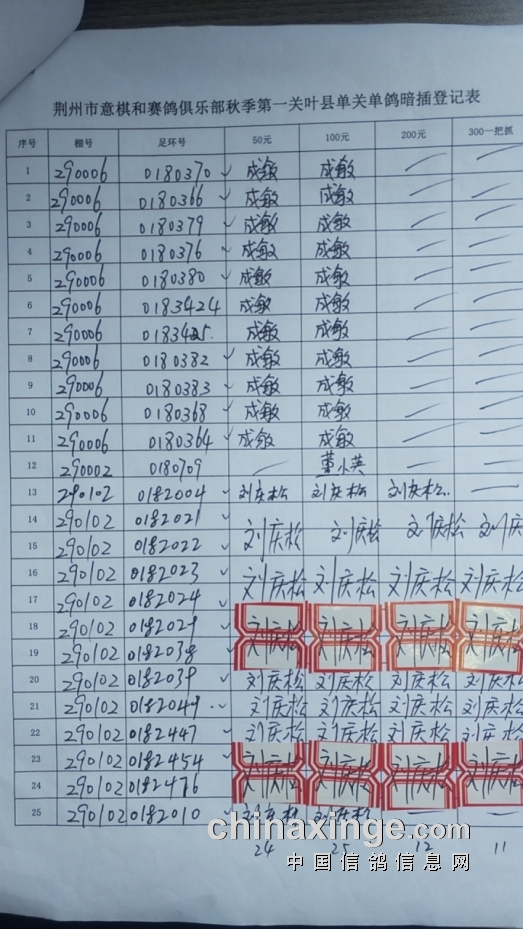 荆州市意棋和赛鸽俱乐部秋季第一关叶县单关单鸽暗插登记表
序号 棚号 足环号 50元 100元 200元 300一把抓
1 290006 0180370 成敏 成敏
2 290006 0180366 成敏 成敏
3 290006 0180379 成敏 成敏
4 290006 0180376 成敏 成敏
5 290006 0180380 成敏 成敏
6 290006 0183424 成敏 成敏
7 290006 0183425 成敏 成敏
8 290006 0180382 成敏 成敏
9 290006 0180383 成敏 成敏
10 290006 0180368 成敏 成敏
11 290006 0180364 成敏 成敏
12 290002 0180709 董小英
13 290102 0182004 刘庆松 刘庆松 刘庆松
14 290102 0182021
15 290102 0182022 刘庆松 刘庆松 刘庆松 刘庆
16 290102 0182023
17 290102 0182024 刘庆松 刘庆松 刘庆松 刘庆松
18 290102 0182029
19 290102 0182038 刘庆松 刘庆松 刘庆松 刘庆松
20 290102 0182039 刘庆松 刘庆松 刘庆松 刘庆松
21 290102 0182049 刘庆松 刘庆松 刘庆松 刘庆松
22 290102 0182447 刘庆松 刘庆松 刘庆松 刘庆松
23 290102 0182454
24 290102 0182476 刘庆松 刘庆松 刘庆松 刘庆松
25 290102 0182010 刘庆松 刘庆松
24 25 12 11
chinaxinge.com
中国信鸽信息网